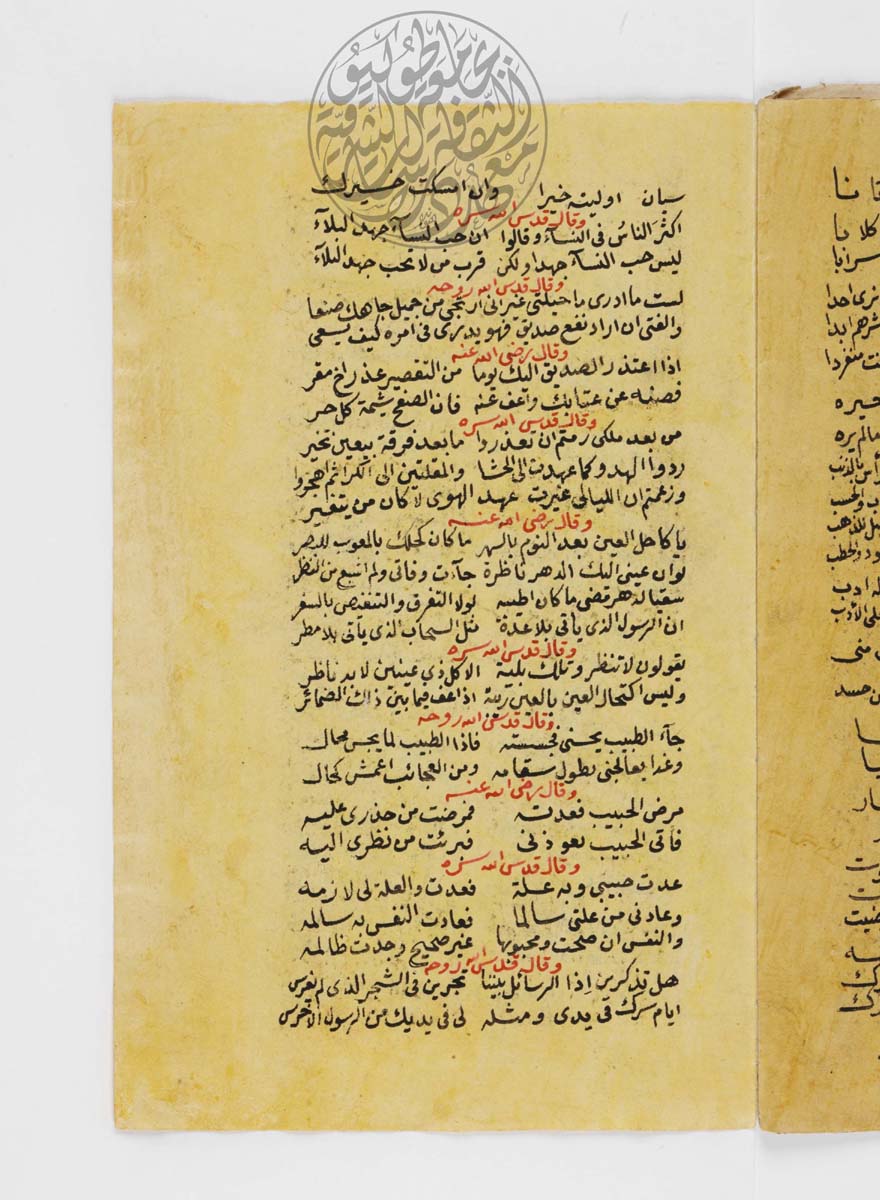 سيان اوليته خيرا وان امسكت خيرك
وقال قدس الله سره
اكثر الناس فى النسآء وقالوا ان حب النسآء جهد البلآء
ليس حب النسآء جهدا ولكن قرب من لا تحب جهد البلآء
وقال قدس الله روحه
لست ما ادرى ما حيلتى غير انى ارتجى من جميل جاهك صنعا
والفتى ان اراد نفع صديق فهو يدرى فى امره كيف يسعى
وقال رضى الله عنه
اذا اعتذر الصديق اليك يوما من التقصير عذر اخ مقر
فصنه عن عتابك واعف عنه فان الصفح شيمة كل حر
وقال قدس الله سره
من بعد ملكى رمتم ان تغدروا ما بعد فرقة بيعين تخير
ردوا الهدو كما عهدت الى الحشا والمقلتين الى الكرا ثم اهجروا
وزعمتم ان الليالى غيرت عهد الهوى لا كان من يتغير
وقال رضى الله عنه
يا كاحل العين بعد النوم بالسهر ما كان كحلك بالمعوب للبصر
لو ان عينى اليك الدهر ناظرة جآءت وفاتى ولم اشبع من النظر
سقيا لدهر قضى ما كان اطيبه لولا التفرق والتنغيص بالسفر
ان الرسول الذى يأتى بلا عدة مثل السحاب الذى يأتى بلا مطر
وقال قدس الله سره
يقولون لا تنظر وتلك بلية الا كل ذى عينين لا بد ناظر
وليس اكتحال العين بالعين ريبة اذا عف فيما بين ذاك الضمائر
وقال قدس الله روحه
جآء الطبيب يجسنى فجسسته فاذا الطبيب لما يجس محال
وغدا يعالجنى بطول سقامه ومن العجائب اعمش كحال
وقال رضى الله عنه
مرض الحبيب فعدته فمرضت من حذرى عليه
فأتى الحبيب يعوذنى فبرئت من نظرى اليه
وقال قدس الله سره
عدت حبيبى وبه علة فعدت والعلة لى لازمه
وعادنى من علتى سالما فعادت النفس به سالمه
والنفس ان صحت ومحبوبها غير صحيح وجدت ظالمه
وقال قدس الله روحه
هل تذكرين اذا الرسائل بيننا تجرين فى الشجر الذى لم يغرس
ايام سرك فى يدى ومثله لى فى يديك من الرسول الاخرس